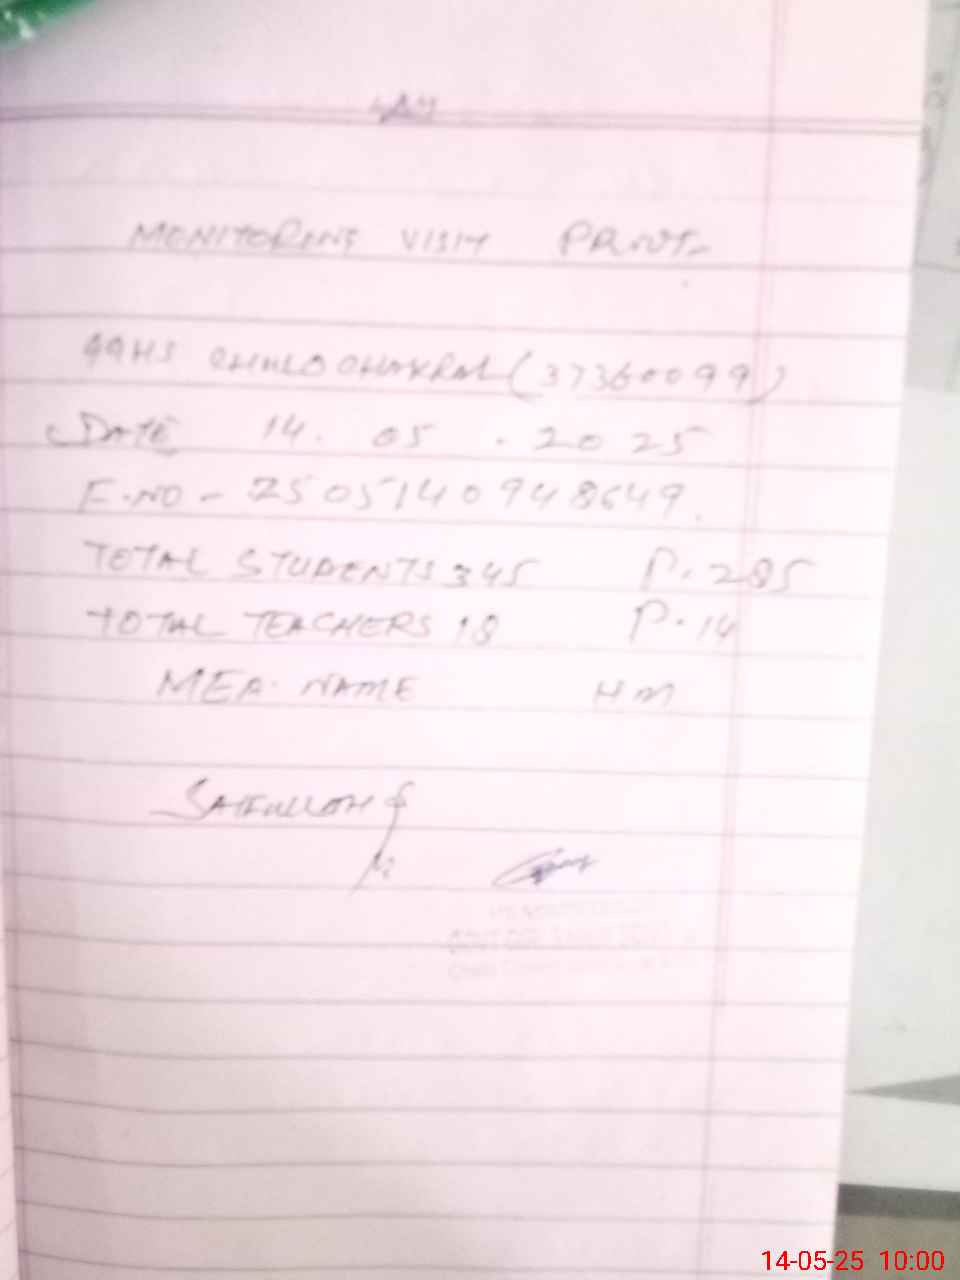 MONITORING VISIT PRINT
GGHS CHALO CHAKRAL (37360099)
DATE 14. 05 . 2025
F.NO - 2505140948649.
TOTAL STUDENTS 345 P. 285
TOTAL TEACHERS 18 P. 14
MEA. NAME HM
SAIFULLAH
14-05-25 10:00